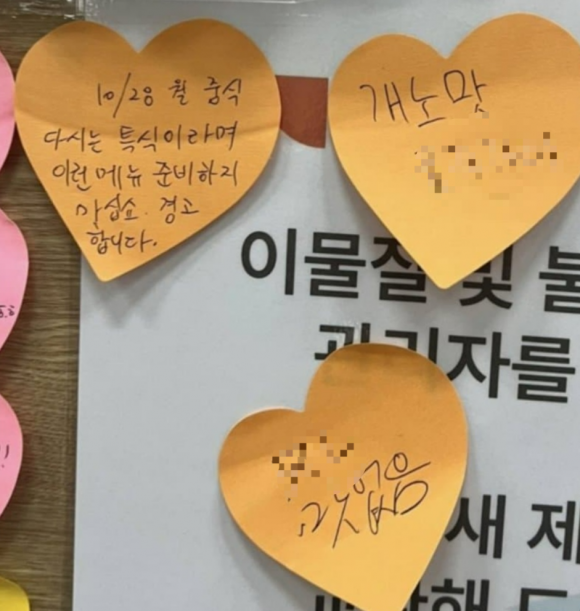 10/28 월 중식
다시는 특식이라며
이런메뉴 준비하지
마십쇼. 경고
합니다.
개노맛
이물질 및 불
관리자를
그릇없음
새 제